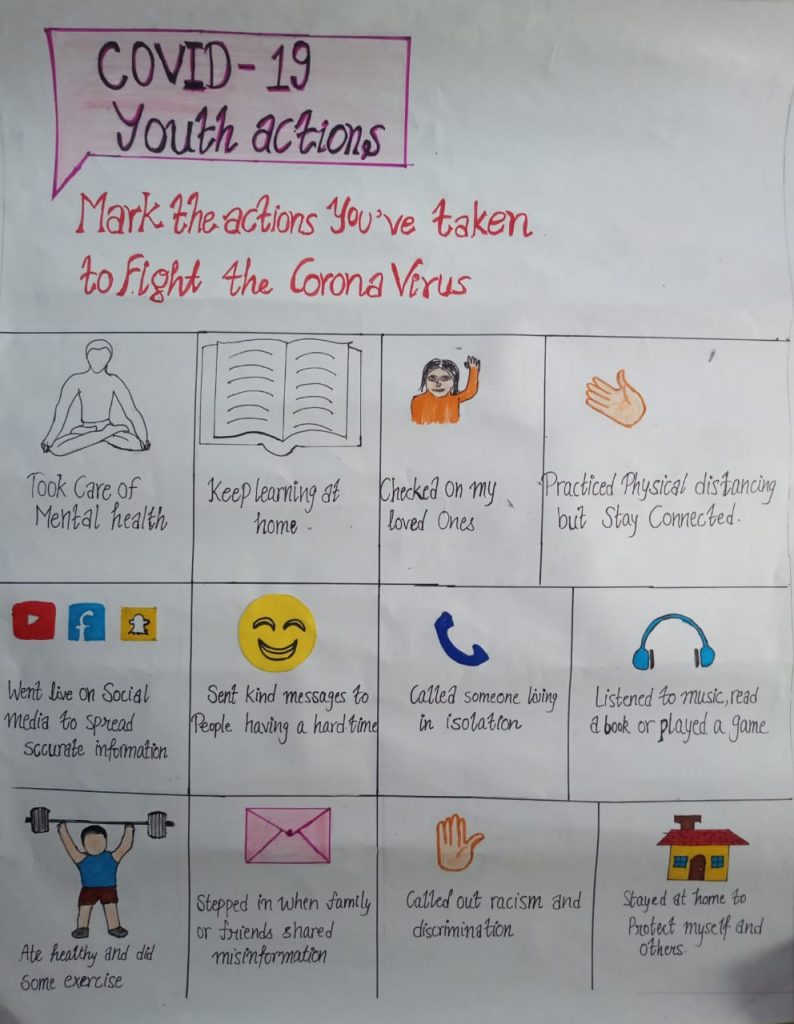 COVID-19
Youth actions
Mark the actions You've taken
to Fight the Corona Virus
Took Care of
Mental health
Keep learning at
home.
Checked on my
loved Ones
Practiced Physical distancing
but Stay Connected.
f
Went live on Social
media to spread
sccurate information
Sent kind messages to
People having a hard time
Called someone living
in isolation
Listened to music, read
a book or played a game
Ate healthy and did
Some exercise
Stepped in when family
or friends shared
misinformation
Called out racism and
discrimination
Stayed at home to
Protect myself and
others.